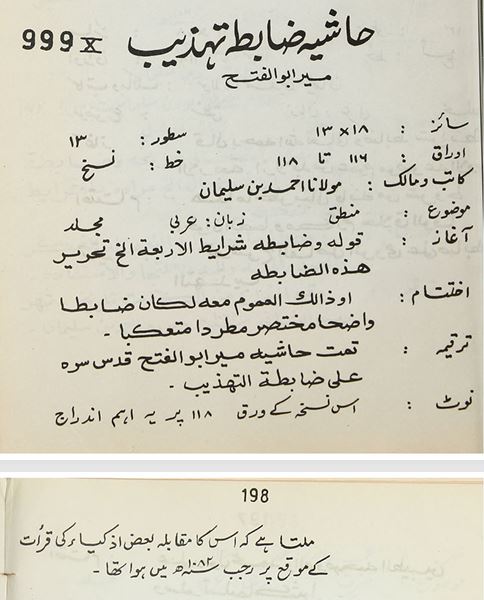 999 X حاشیه ضابطہ تہذیب
میر ابوالفتح
سائز : ۱۸×۱۳ سطور : ۱۳
اوراق : ۱۱۶ تا ۱۱۸ خط : نسخ
کاتب و مالک : مولانا احمد بن سلیمان
موضوع : منطق زبان : عربی مجلد
آغاز : قوله وضابطه شرایط الاربعة الخ تحریر
هذه الضابطه
اختتام : او ذالك العموم معه لكان ضابطا
واضحا مختصر مطردا متعکبا ۔
ترقیمہ : تمت حاشیه میر ابو الفتح قدس سره
علی ضابطة التهذیب ۔
نوٹ : اس نسخہ کے ورق ۱۱۸ پر یہ اہم اندراج
198
ملتا ہے کہ اس کا مقابلہ بعض اذکیاء کی قرأت
کے موقع پر رجب سنہ ۱۰۸۲ھ میں ہوا تھا ۔